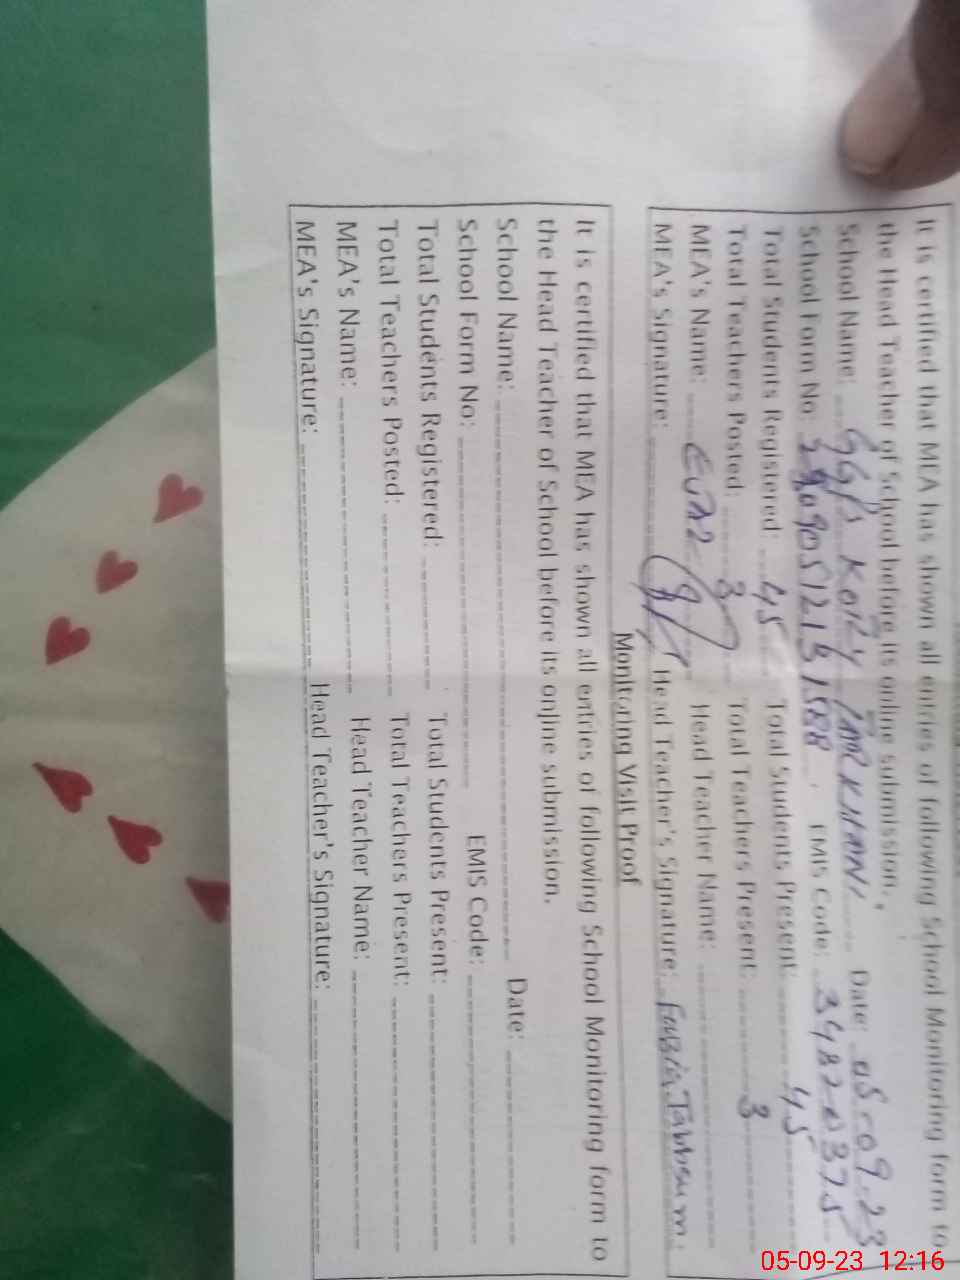 It is certified that MEA has shown all entries of following School Monitoring form to
the Head Teacher of School before its online submission.
School Name: GGPS Date: 05-09-23
School Form No: EMIS Code:
Total Students Registered: 45 Total Students Present: 45
Total Teachers Posted: 3 Total Teachers Present: 3
MEA's Name: Head Teacher Name:
MEA's Signature: Head Teacher's Signature: Fouzia Tabbsum.
Monitoring Visit Proof
It is certified that MEA has shown all entries of following School Monitoring form to
the Head Teacher of School before its online submission.
School Name: Date:
School Form No: EMIS Code:
Total Students Registered: Total Students Present:
Total Teachers Posted: Total Teachers Present:
MEA's Name: Head Teacher Name:
MEA's Signature: Head Teacher's Signature:
05-09-23 12:16